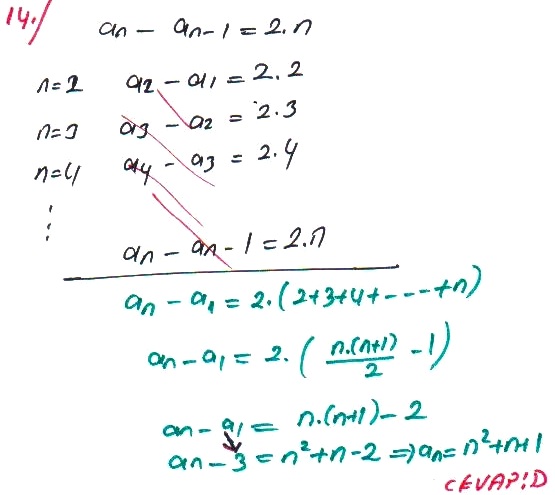 14./
an - an-1 = 2.n
n=2 a2 - a1 = 2.2
n=3 a3 - a2 = 2.3
n=4 a4 - a3 = 2.4
⋮
an - an-1 = 2.n
an - a1 = 2.(2+3+4+----+n)
an - a1 = 2.(n.(n+1)/2 - 1)
an - a1 = n.(n+1) - 2
an - 3 = n²+n-2 ⇒ an = n²+n+1
CEVAP:D